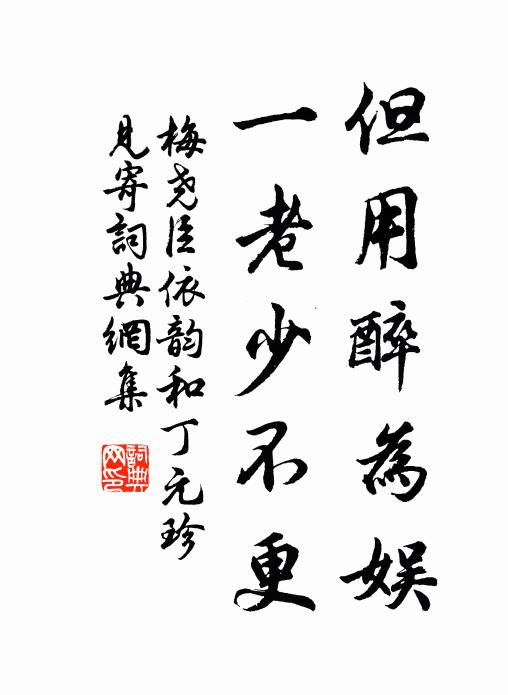 但用醉為娛
一老少不更
梅堯臣依韵和丁元珍
見寄詞典網集
詞典网印